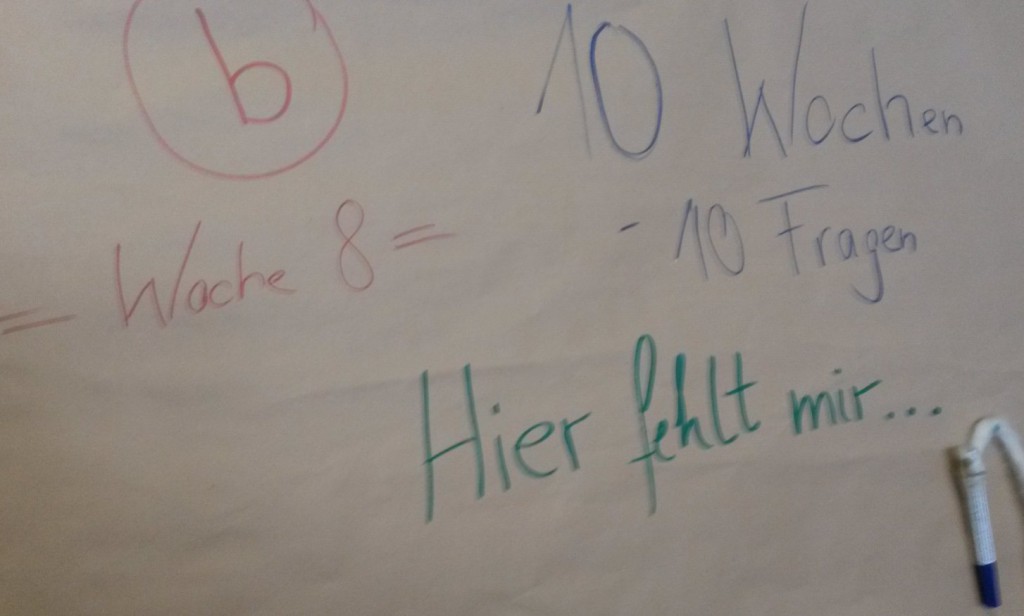 b
10 Wochen
= Woche 8 =
- 10 Fragen
Hier fehlt mir...